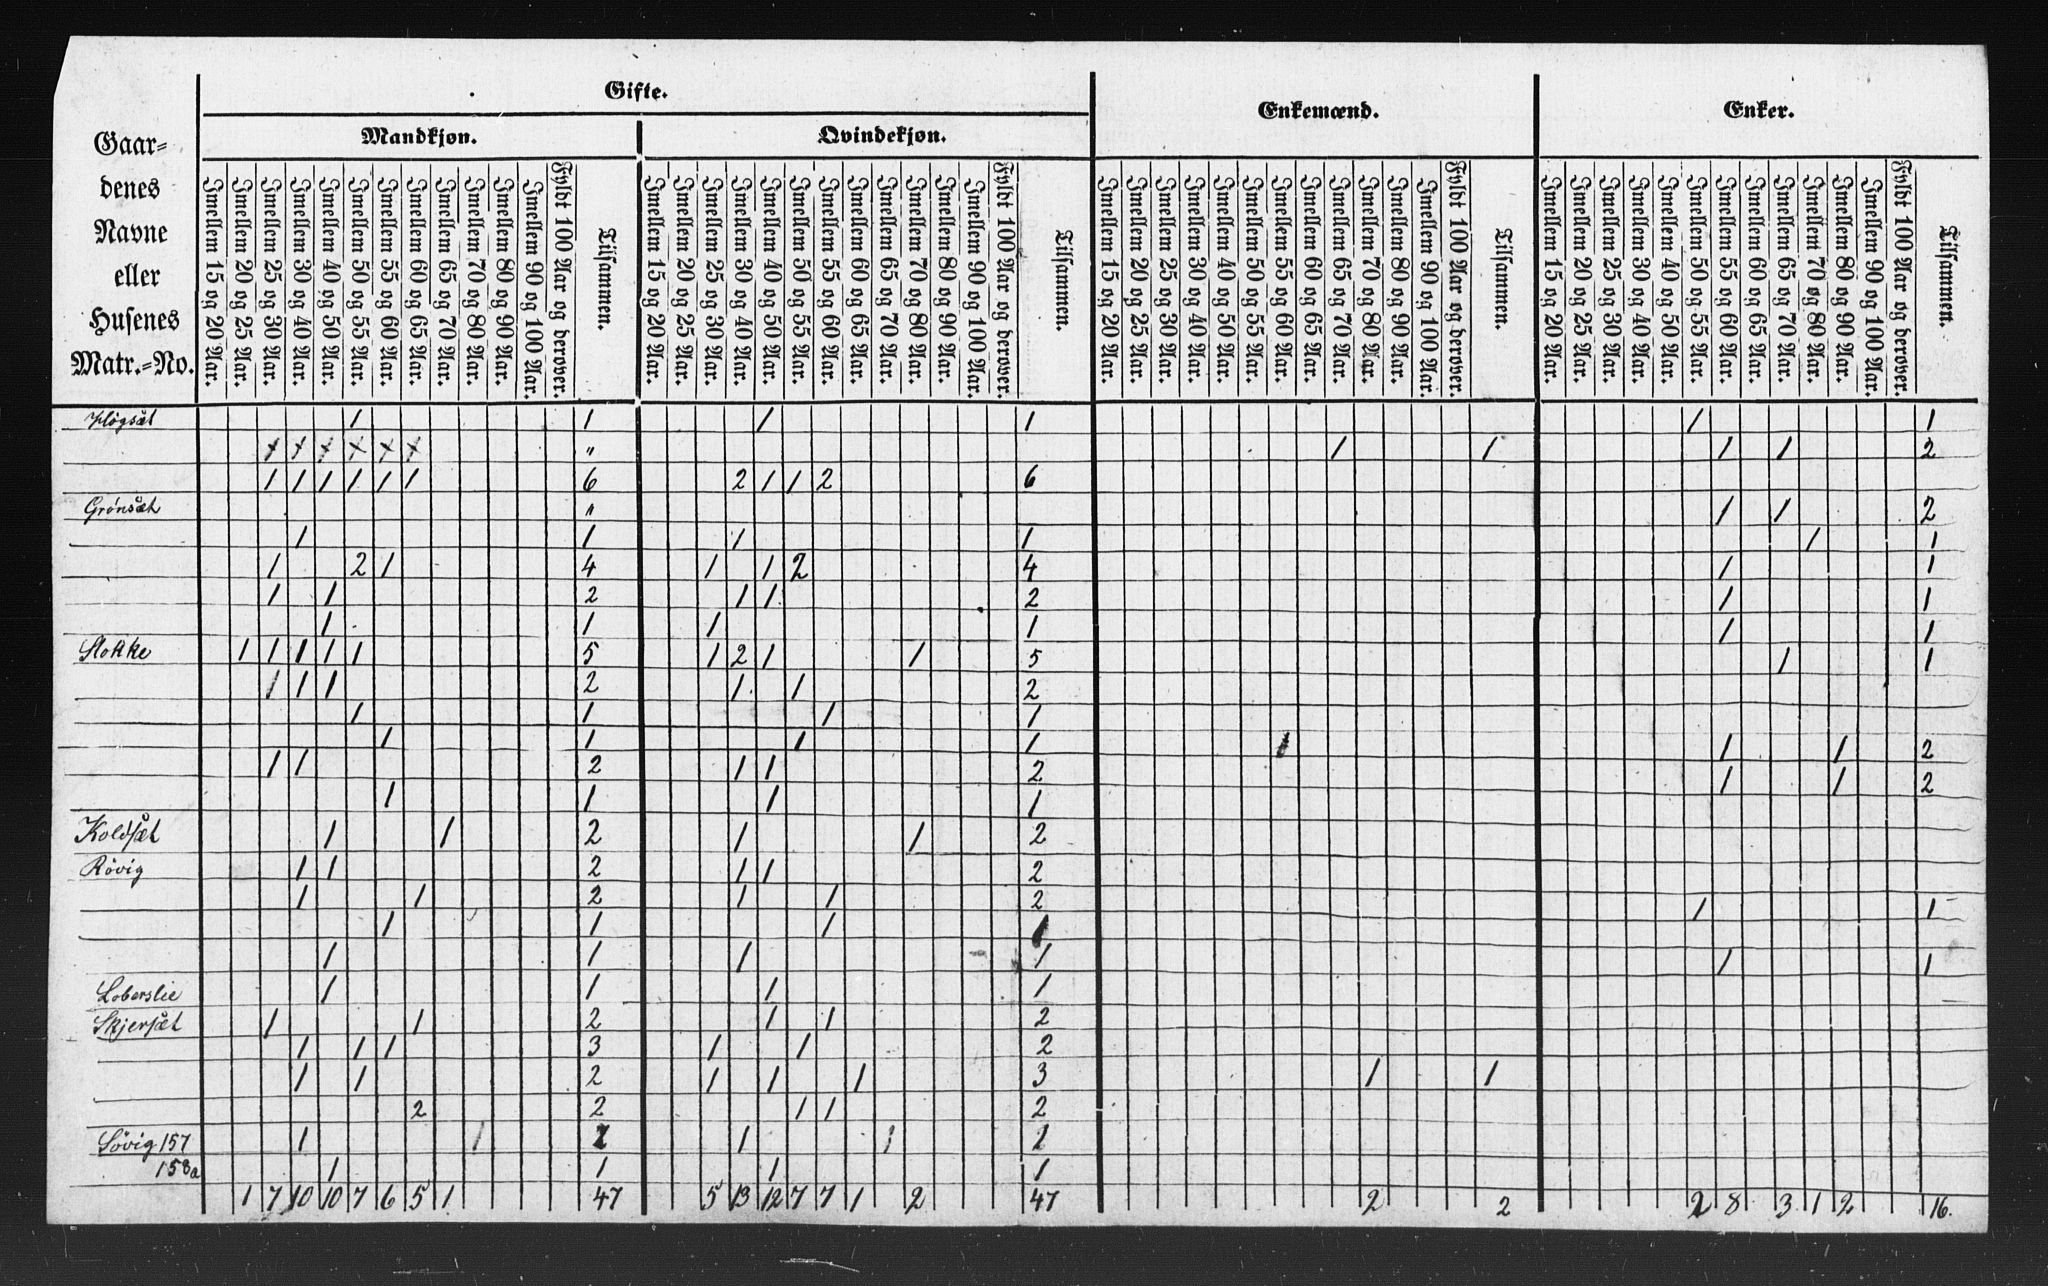 Gifte. Enkemænd. Enker.
Gaar=
denes
Navne
eller
Husenes
Matr.=No.
Mandkjøn. Qvindekjøn.
Imellem 15 og 20 Aar. Imellem 20 og 25 Aar. Imellem 25 og 30 Aar. Imellem 30 og 40 Aar. Imellem 40 og 50 Aar. Imellem 50 og 55 Aar. Imellem 55 og 60 Aar. Imellem 60 og 65 Aar. Imellem 65 og 70 Aar. Imellem 70 og 80 Aar. Imellem 80 og 90 Aar. Imellem 90 og 100 Aar. Fyldt 100 Aar og derover. Tilsammen.
Imellem 15 og 20 Aar. Imellem 20 og 25 Aar. Imellem 25 og 30 Aar. Imellem 30 og 40 Aar. Imellem 40 og 50 Aar. Imellem 50 og 55 Aar. Imellem 55 og 60 Aar. Imellem 60 og 65 Aar. Imellem 65 og 70 Aar. Imellem 70 og 80 Aar. Imellem 80 og 90 Aar. Imellem 90 og 100 Aar. Fyldt 100 Aar og derover. Tilsammen.
Imellem 15 og 20 Aar. Imellem 20 og 25 Aar. Imellem 25 og 30 Aar. Imellem 30 og 40 Aar. Imellem 40 og 50 Aar. Imellem 50 og 55 Aar. Imellem 55 og 60 Aar. Imellem 60 og 65 Aar. Imellem 65 og 70 Aar. Imellem 70 og 80 Aar. Imellem 80 og 90 Aar. Imellem 90 og 100 Aar. Fyldt 100 Aar og derover. Tilsammen.
Imellem 15 og 20 Aar. Imellem 20 og 25 Aar. Imellem 25 og 30 Aar. Imellem 30 og 40 Aar. Imellem 40 og 50 Aar. Imellem 50 og 55 Aar. Imellem 55 og 60 Aar. Imellem 60 og 65 Aar. Imellem 65 og 70 Aar. Imellem 70 og 80 Aar. Imellem 80 og 90 Aar. Imellem 90 og 100 Aar. Fyldt 100 Aar og derover. Tilsammen.
1 1 1 1 1 1
" 1 1 1 1 2
1 1 1 1 1 1 6 2 1 1 2 6
Grönsæt " 1 1 2
1 1 1 1 1 1
1 2 1 4 1 1 2 4 1 1
1 1 2 1 1 2 1 1
1 1 1 1 1 1
Stokke 1 1 1 1 1 5 1 2 1 1 5 1 1
1 1 1 2 1 1 2
1 1 1 1
1 1 1 1 1 1 2
1 1 2 1 1 2 1 1 2
1 1 1 1
Koldsæt 1 1 2 1 1 2
Rövig 1 1 2 1 1 2
1 1 2 1 1 2 1 1
1 1 1 1
1 1 1 1 1 1
Loberslie 1 1 1 1
Skjersæt 1 1 2 1 1 2
1 1 1 3 1 1 2
1 1 2 1 1 1 3 1 1
2 2 1 1 2
Sövig 157 1 1 1 1
158a 1 1 1 1
1 7 10 10 7 6 5 1 47 5 13 12 7 7 1 2 47 2 2 2 8 3 1 2 16.